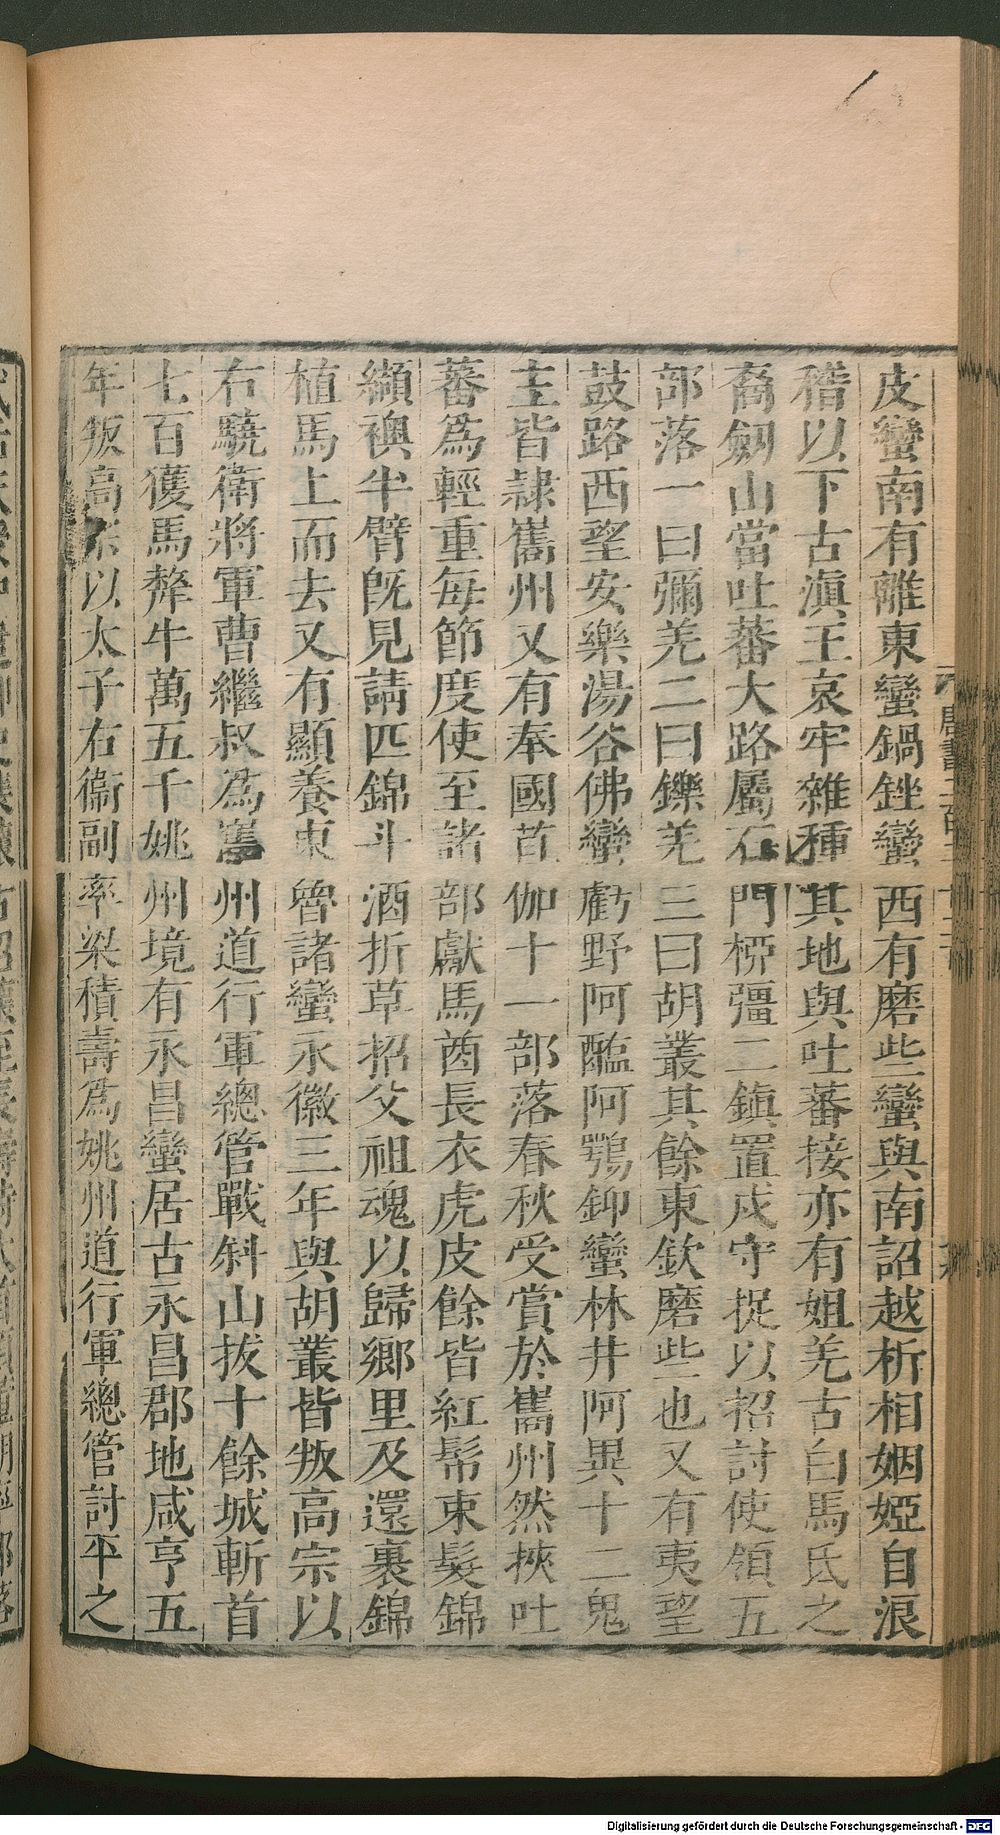 皮蠻南有離東蠻鍋銼蠻西有磨些蠻與南詔越析相姻婭自浪
稽以下古滇王哀牢雜種其地與吐蕃接亦有姐羌古白馬氐之
裔劒山當吐蕃大路屬石門栁彊二鎮置戍守捉以招討使領五
部落一曰彌羌二曰鑠羌三曰胡叢其餘東欽磨些也又有夷望
鼓路西望安樂湯谷佛蠻虧野阿醢阿鶚鉚蠻林井阿異十二鬼
主皆隸巂州又有奉國苴伽十一部落春秋受賞於巂州然挾吐
蕃爲輕重每節度使至諸部獻馬酋長衣虎皮餘皆紅帬束髮錦
纈襖半臂旣見請匹錦斗酒折草招父祖魂以歸鄉里及還裹錦
植馬上而去又有顯養東魯諸蠻永徽三年與胡叢皆叛高宗以
右驍衛將軍曹繼叔爲巂州道行軍總管戰斜山拔十餘城斬首
七百獲馬犛牛萬五千姚州境有永昌蠻居古永昌郡地咸亨五
年叛高宗以太子右衞副率梁積壽爲姚州道行軍總管討平之
Digitalisierung gefördert durch die Deutsche Forschungsgemeinschaft - DFG